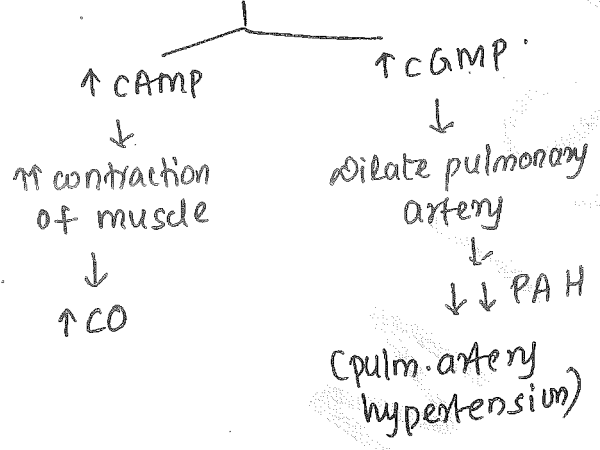 ↑ cAMP
↓
↑↑ contraction
of muscle
↓
↑ CO
↑ cGMP.
↓
Dilate pulmonary
artery
↓
↓↓ PAH
(pulm. artery
hypertension)